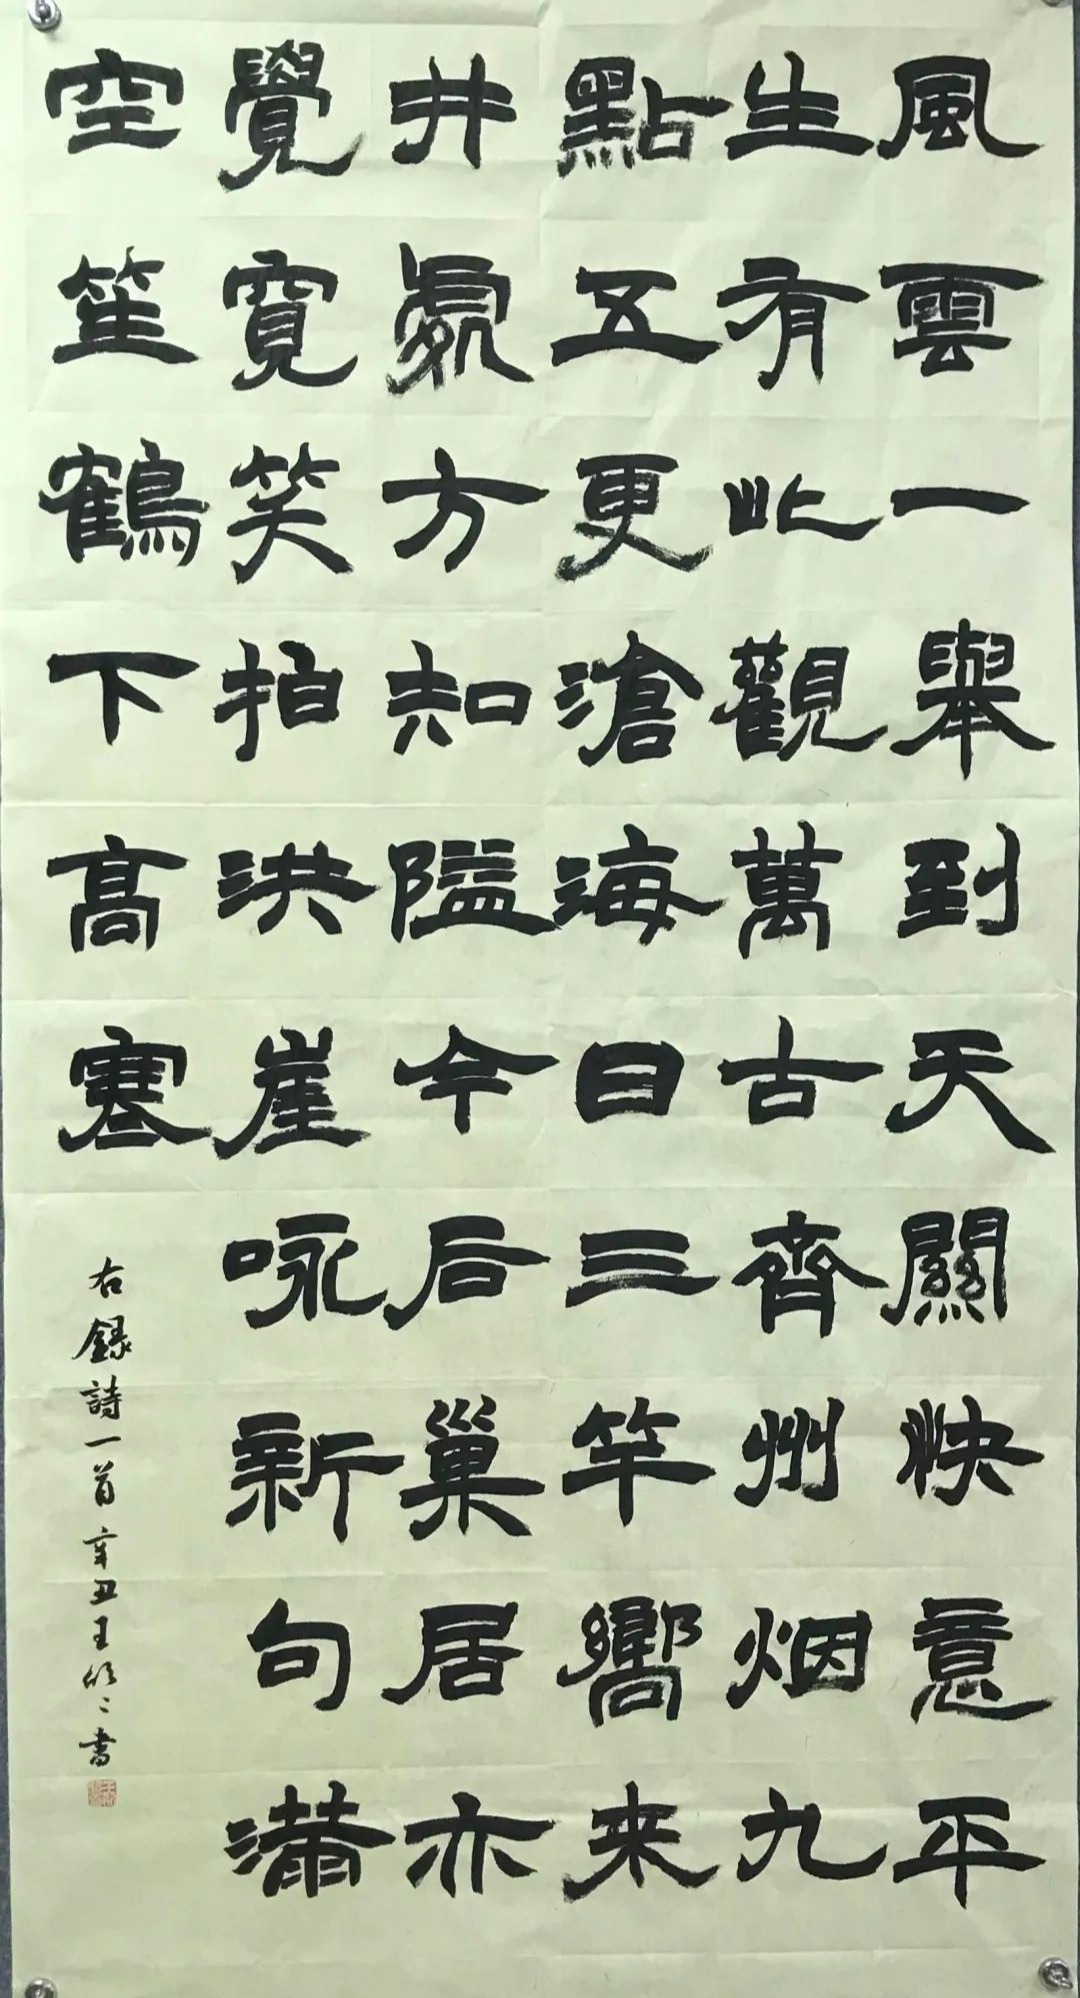 風雲一舉到天關快意平
生有此觀萬古齊州烟九
點五更滄海日三竿嚮来
井處方知隘今后巢居亦
覺寬笑拍洪崖咏新句滿
空笙鶴下高寒
右録詩一首辛丑王書